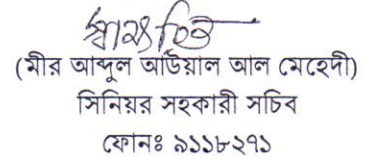 স্বাক্ষরিত
(মীর আব্দুল আউয়াল আল মেহেদী)
সিনিয়র সহকারী সচিব
ফোনঃ ৯১১৮২৭১